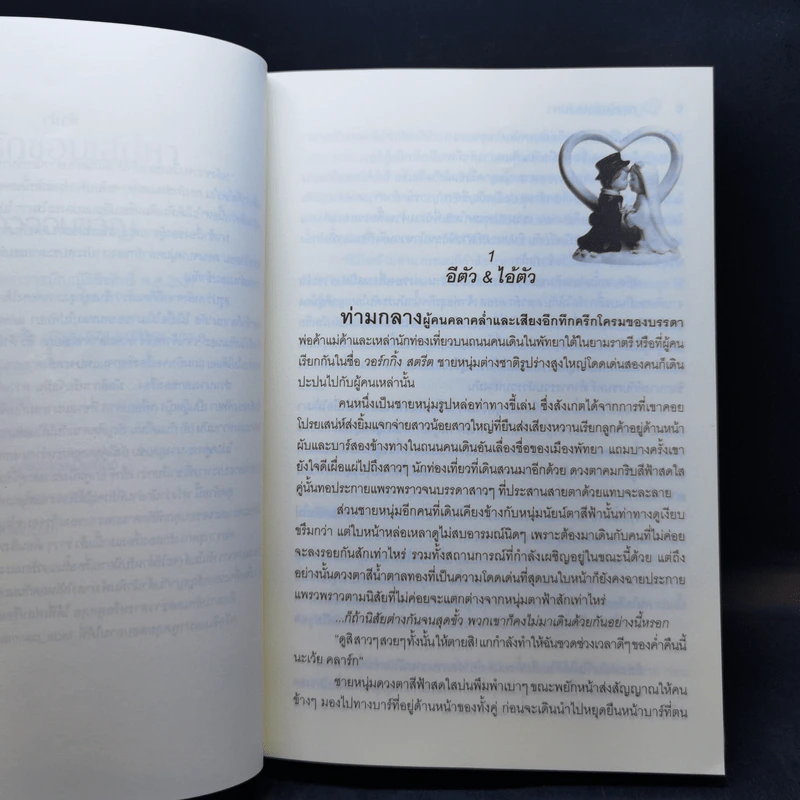 1
อีตัว & ไอ้ตัว
ท่ามกลางผู้คนคลาคล่ำและเสียงอึกทึกครึกโครมของบรรดา
พ่อค้าแม่ค้าและเหล่านักท่องเที่ยวบนถนนคนเดินในพัทยาใต้ในยามราตรี หรือที่ผู้คน
เรียกกันในชื่อ วอร์กกิ้ง สตรีต ชายหนุ่มต่างชาติรูปร่างสูงใหญ่โดดเด่นสองคนก็เดิน
ปะปนไปกับผู้คนเหล่านั้น
คนหนึ่งเป็นชายหนุ่มรูปหล่อท่าทางขี้เล่น ซึ่งสังเกตได้จากการที่เขาคอย
โปรยเสน่ห์ส่งยิ้มแจกจ่ายสาวน้อยสาวใหญ่ที่ยืนส่งเสียงหวานเรียกลูกค้าอยู่ด้านหน้า
ผับและบาร์สองข้างทางในถนนคนเดินอันเลื่องชื่อของเมืองพัทยา แถมบางครั้งเขา
ยังใจดีเผื่อแผ่ไปถึงสาวๆ นักท่องเที่ยวที่เดินสวนมาอีกด้วย ดวงตาคมกริบสีฟ้าสดใส
คู่นั้นทอประกายแพรวพราวจนบรรดาสาวๆ ที่ประสานสายตาด้วยแทบจะละลาย
ส่วนชายหนุ่มอีกคนที่เดินเคียงข้างกับหนุ่มนัยน์ตาสีฟ้านั้นท่าทางดูเงียบ
ขรึมกว่า แต่ใบหน้าหล่อเหลาดูไม่สบอารมณ์นิดๆ เพราะต้องมาเดินกับคนที่ไม่ค่อย
จะลงรอยกันสักเท่าไหร่ รวมทั้งสถานการณ์ที่กำลังเผชิญอยู่ในขณะนี้ด้วย แต่ถึง
อย่างนั้นดวงตาสีน้ำตาลทองที่เป็นความโดดเด่นที่สุดบนใบหน้าก็ยังคงฉายประกาย
แพรวพราวตามนิสัยที่ไม่ค่อยจะแตกต่างจากหนุ่มตาฟ้าสักเท่าไหร่
...ก็ถ้านิสัยต่างกันจนสุดขั้ว พวกเขาก็คงไม่มาเดินด้วยกันอย่างนี้หรอก
"ดูสิสาวๆสวยๆทั้งนั้นให้ตายสิ! แกกำลังทำให้ฉันชวดช่วงเวลาดีๆของค่ำคืนนี้
นะเว้ย คลาร์ก"
ชายหนุ่มดวงตาสีฟ้าสดใสบ่นพึมพำเบาๆ ขณะพยักหน้าส่งสัญญาณให้คน
ข้างๆ มองไปทางบาร์ที่อยู่ด้านหน้าของทั้งคู่ ก่อนจะเดินนำไปหยุดยืนหน้าบาร์ที่ตน